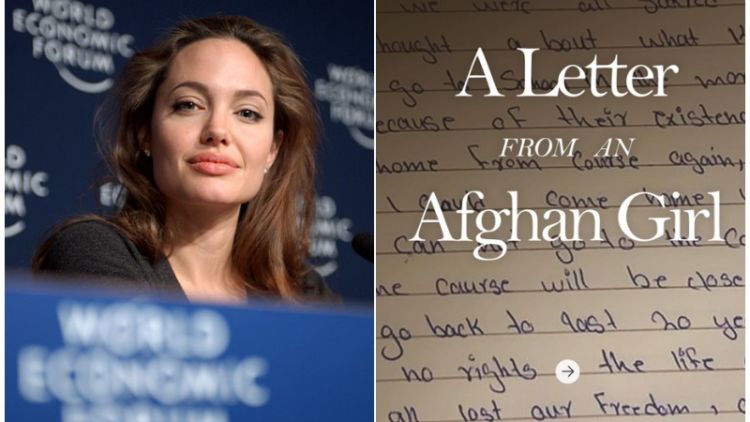 WORLD
ECONOMIC
FORUM
WORLD
ECONOMIC
FORUM
A Letter
FROM AN
Afghan Girl
we were all
a bout what
go to
because of their existen
home from course again,
I could come home
can not go to the Co
he caurse will be close
go back to last 20 ye
no rights → the life
all lost our Freedom,